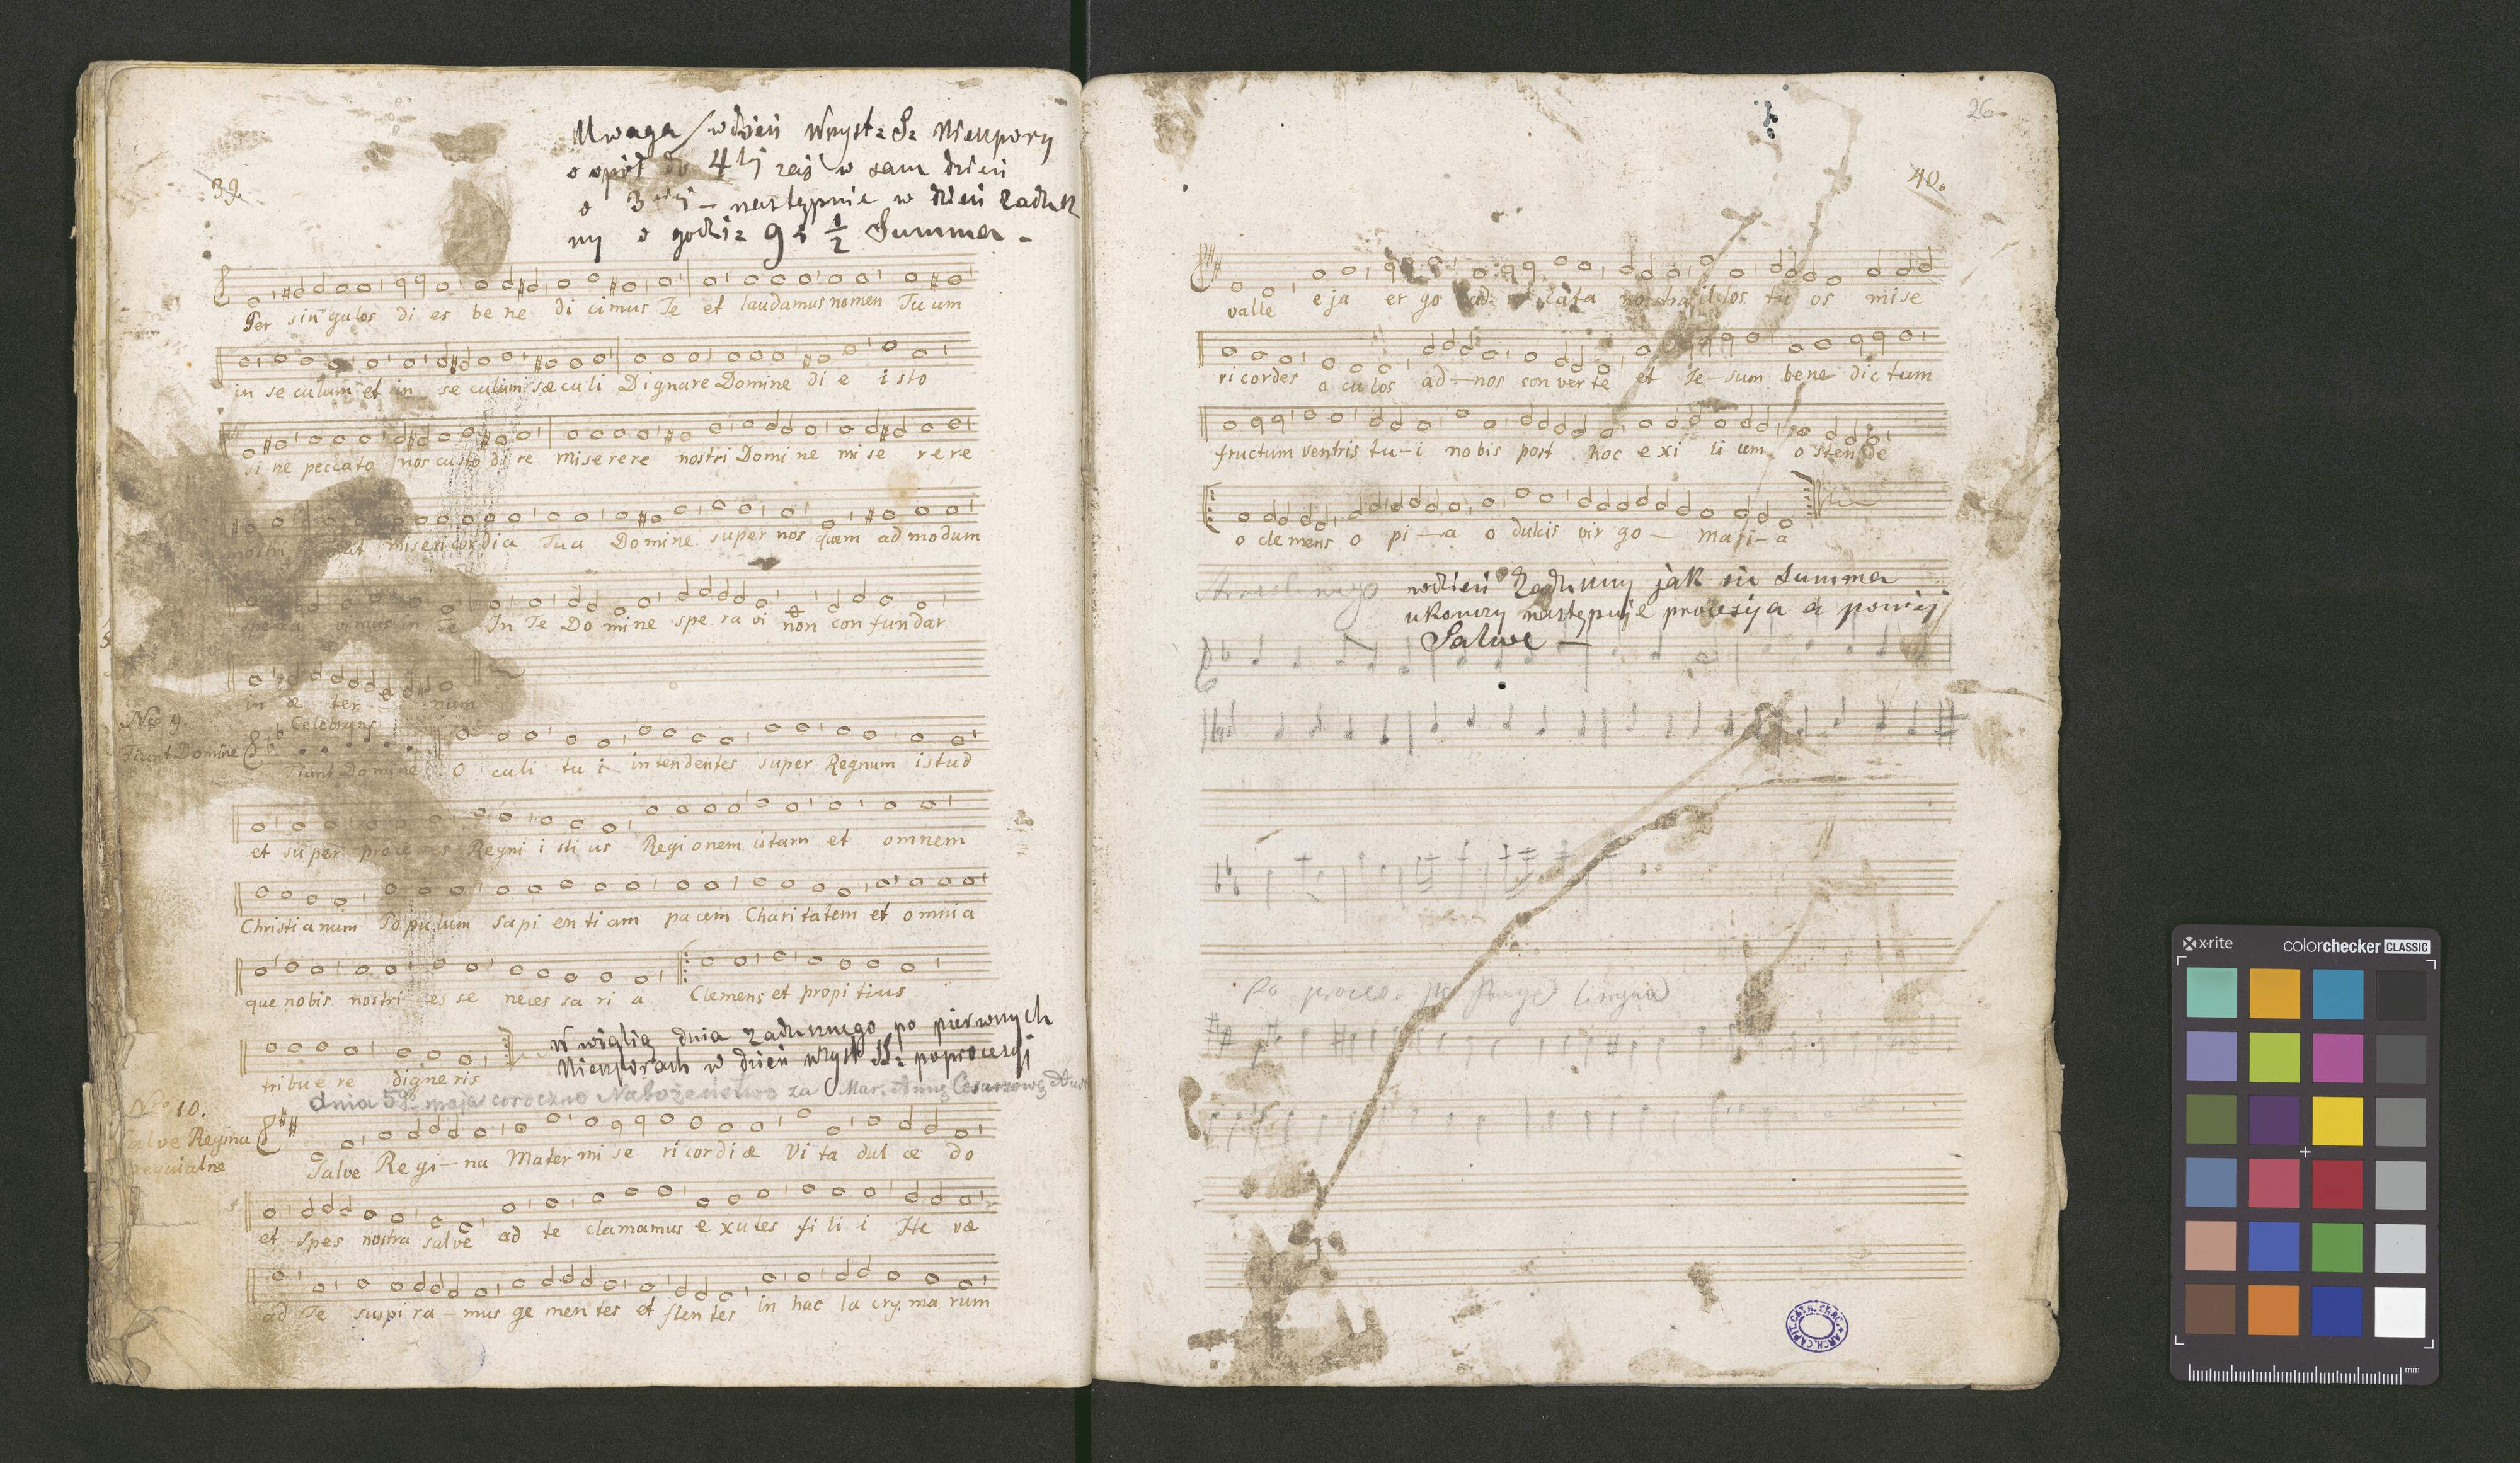 39.
Uwaga w dzień Wszyst: S: Nieszpory
o wpół do 4tj zaś w sam dzień
o 3ciéj – następnie w dzień Zadusz
ny o godzi: 9 i 1/2 Summa –
Per singulos di es be ne di cimus Te et laudamus nomen Tu um
in se culum et in se culum sæculi Dignare Domine di e isto
si ne peccato nos custo di re miserere nostri Domi ne mi se rere
nostri misericordia Tua Domine super nos quem ad modum
spera vimus in Te In Te Do mine spe ra vi non con fundar
in æ ter – num
Nro 9.
Celebrans
Fiant Domine
Fiant Domine O culi tu i intendentes super Regnum istud
et super proce res Regni i sti us Regi onem istam et omnem
Christi anum Po pulum sapi en ti am pacem Charitatem et omnia
que nobis nostri es se neces sa ri a Clemens et propi tius
tribu e re digne ris
W wiglią dnia zadusznego po pierwszych
Nieszporach w dzień wszyst: SS: po procesyj
dnia 5go maja coroczno Nabożeństwo za Mar: Annę Cesarzową Aus
Nro 10.
Salve Regina
requialne
Salve Re gi – na Mater mi se ri cordi æ Vi ta dul ce do
et spes nostra salve ad te clamamus e xules fi li i He væ
ad Te suspi ra – mus ge men tes et flen tes in hac la cry. ma rum
26
40.
valle e ja er go ad nostra illos tu os mise
ricordes o culos ad – nos con verte et Je – sum bene dictum
fructum ventris tu – i nobis post hoc e xi li um o sten de
o clemens o pi – a o dulcis vir go – Mari – a
w dzień Zaduszny jak się Summa
ukonczy następuje procesyja a poniéj
Salve –
Po proces. Pange lingua
ARCH. CAPIT. CATH. CRAC.
x-rite
colorchecker CLASSIC
mm